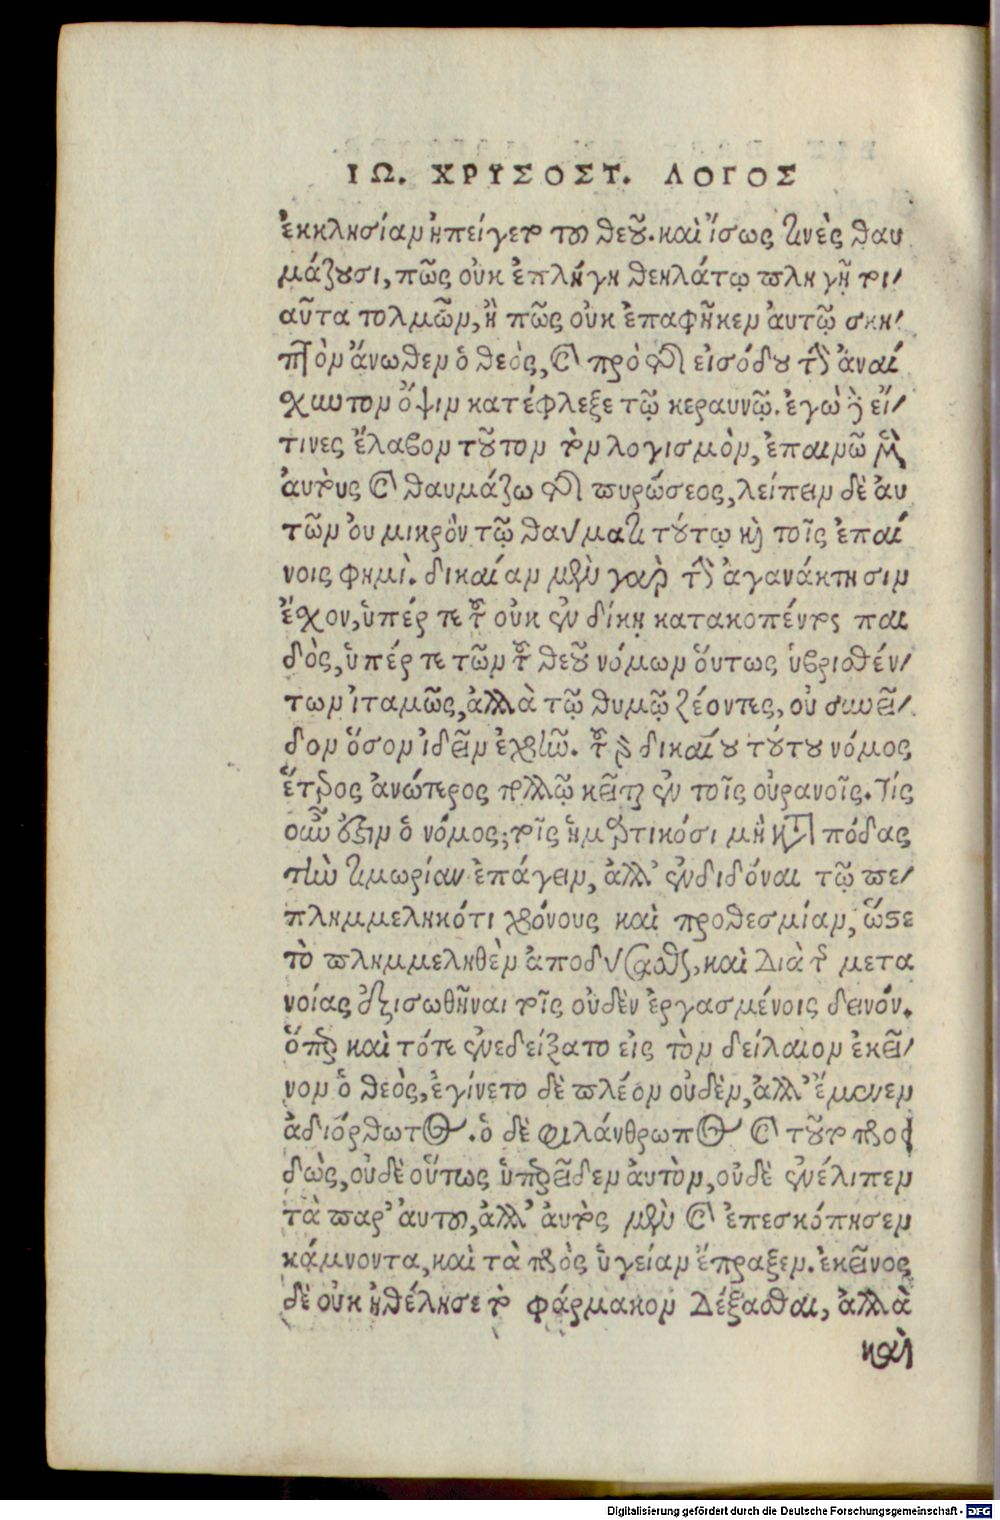 ΙΩ. ΧΡΥΣΟΣΤ. ΛΟΓΟΣ
ἐκκλησίαν ἠπείγετο τοῦ θεοῦ. καὶ ἴσως τινὲς θαυ
μάζουσι, πῶς οὐκ ἐπλήγη θεηλάτῳ πληγῇ τοι/
αῦτα τολμῶν, ἢ πῶς οὐκ ἐπαφῆκεν ἀυτῷ σκη/
πτὸν ἄνωθεν ὁ θεὸς, καὶ πρὸ τῆς εἰσόδου τὴν ἀναί
χωτον ὄψιν κατέφλεξε τῷ κεραυνῷ. ἐγὼ δὲ εἴ/
τινες ἔλαβον τοῦτον τὸν λογισμὸν, ἐπαινῶ μὲν
ἀυτοὺς καὶ θαυμάζω τῆς πυρώσεος, λείπειν δὲ ἀυ
τῶν ὀυ μικρὸν τῷ θαύματι τούτῳ καὶ τοῖς ἐπαί
νοις φημὶ. δικαίαν μὲν γὰρ τὴν ἀγανάκτησιν
ἔχον, ὑπέρ τε τοῦ οὐκ ἐν δίκῃ κατακοπέντος παι
δὸς, ὑπέρ τε τῶν τοῦ θεοῦ νόμων ὅυτως ὑβρισθέν/
των ἰταμῶς, ἀλλὰ τῷ θυμῷ ζέοντες, οὐ συνεῖ/
δον ὅσον ἰδεῖν ἐχρῆν. τοῦ γὰρ δικαίου τούτου νόμος
ἕτερος ἀνώτερος πολλῷ κεῖται ἐν τοῖς οὐρανοῖς. Τίς
οὖν ἐστιν ὁ νόμος; τοῖς ἡμαρτικόσι μὴ κατὰ πόδας
τὴν τιμωρίαν ἐπάγειν, ἀλλ' ἐνδιδόναι τῷ πε/
πλημμεληκότι χρόνους καὶ προθεσμίαν, ὥστε
τὸ πλημμεληθὲν ἀποδύσασθαι, καὶ Διὰ τῆς μετα
νοίας ἐξισωθῆναι τοῖς οὐδὲν ἐργασμένοις δεινόν.
ὅπερ καὶ τότε ἐνεδείξατο εἰς τὸν δείλαιον ἐκεῖ/
νον ὁ θεὸς, ἐγίνετο δὲ πλέον οὐδὲν, ἀλλ' ἔμενεν
ἀδιόρθωτος. ὁ δὲ φιλάνθρωπος καὶ τοῦτο προει
δὼς, οὐδὲ οὕτως ὑπερεῖδεν ἀυτὸν, οὐδὲ ἐνέλιπεν
τὰ παρ' ἀυτοῦ, ἀλλ' ἀυτὸς μὲν καὶ ἐπεσκόπησεν
κάμνοντα, καὶ τὰ πρὸς ὑγείαν ἔπραξεν. ἐκεῖνος
δὲ οὐκ ἠθέλησε τὸ φάρμακον Δέξασθαι, ἀλλὰ
καὶ
Digitalisierung gefördert durch die Deutsche Forschungsgemeinschaft - DFG